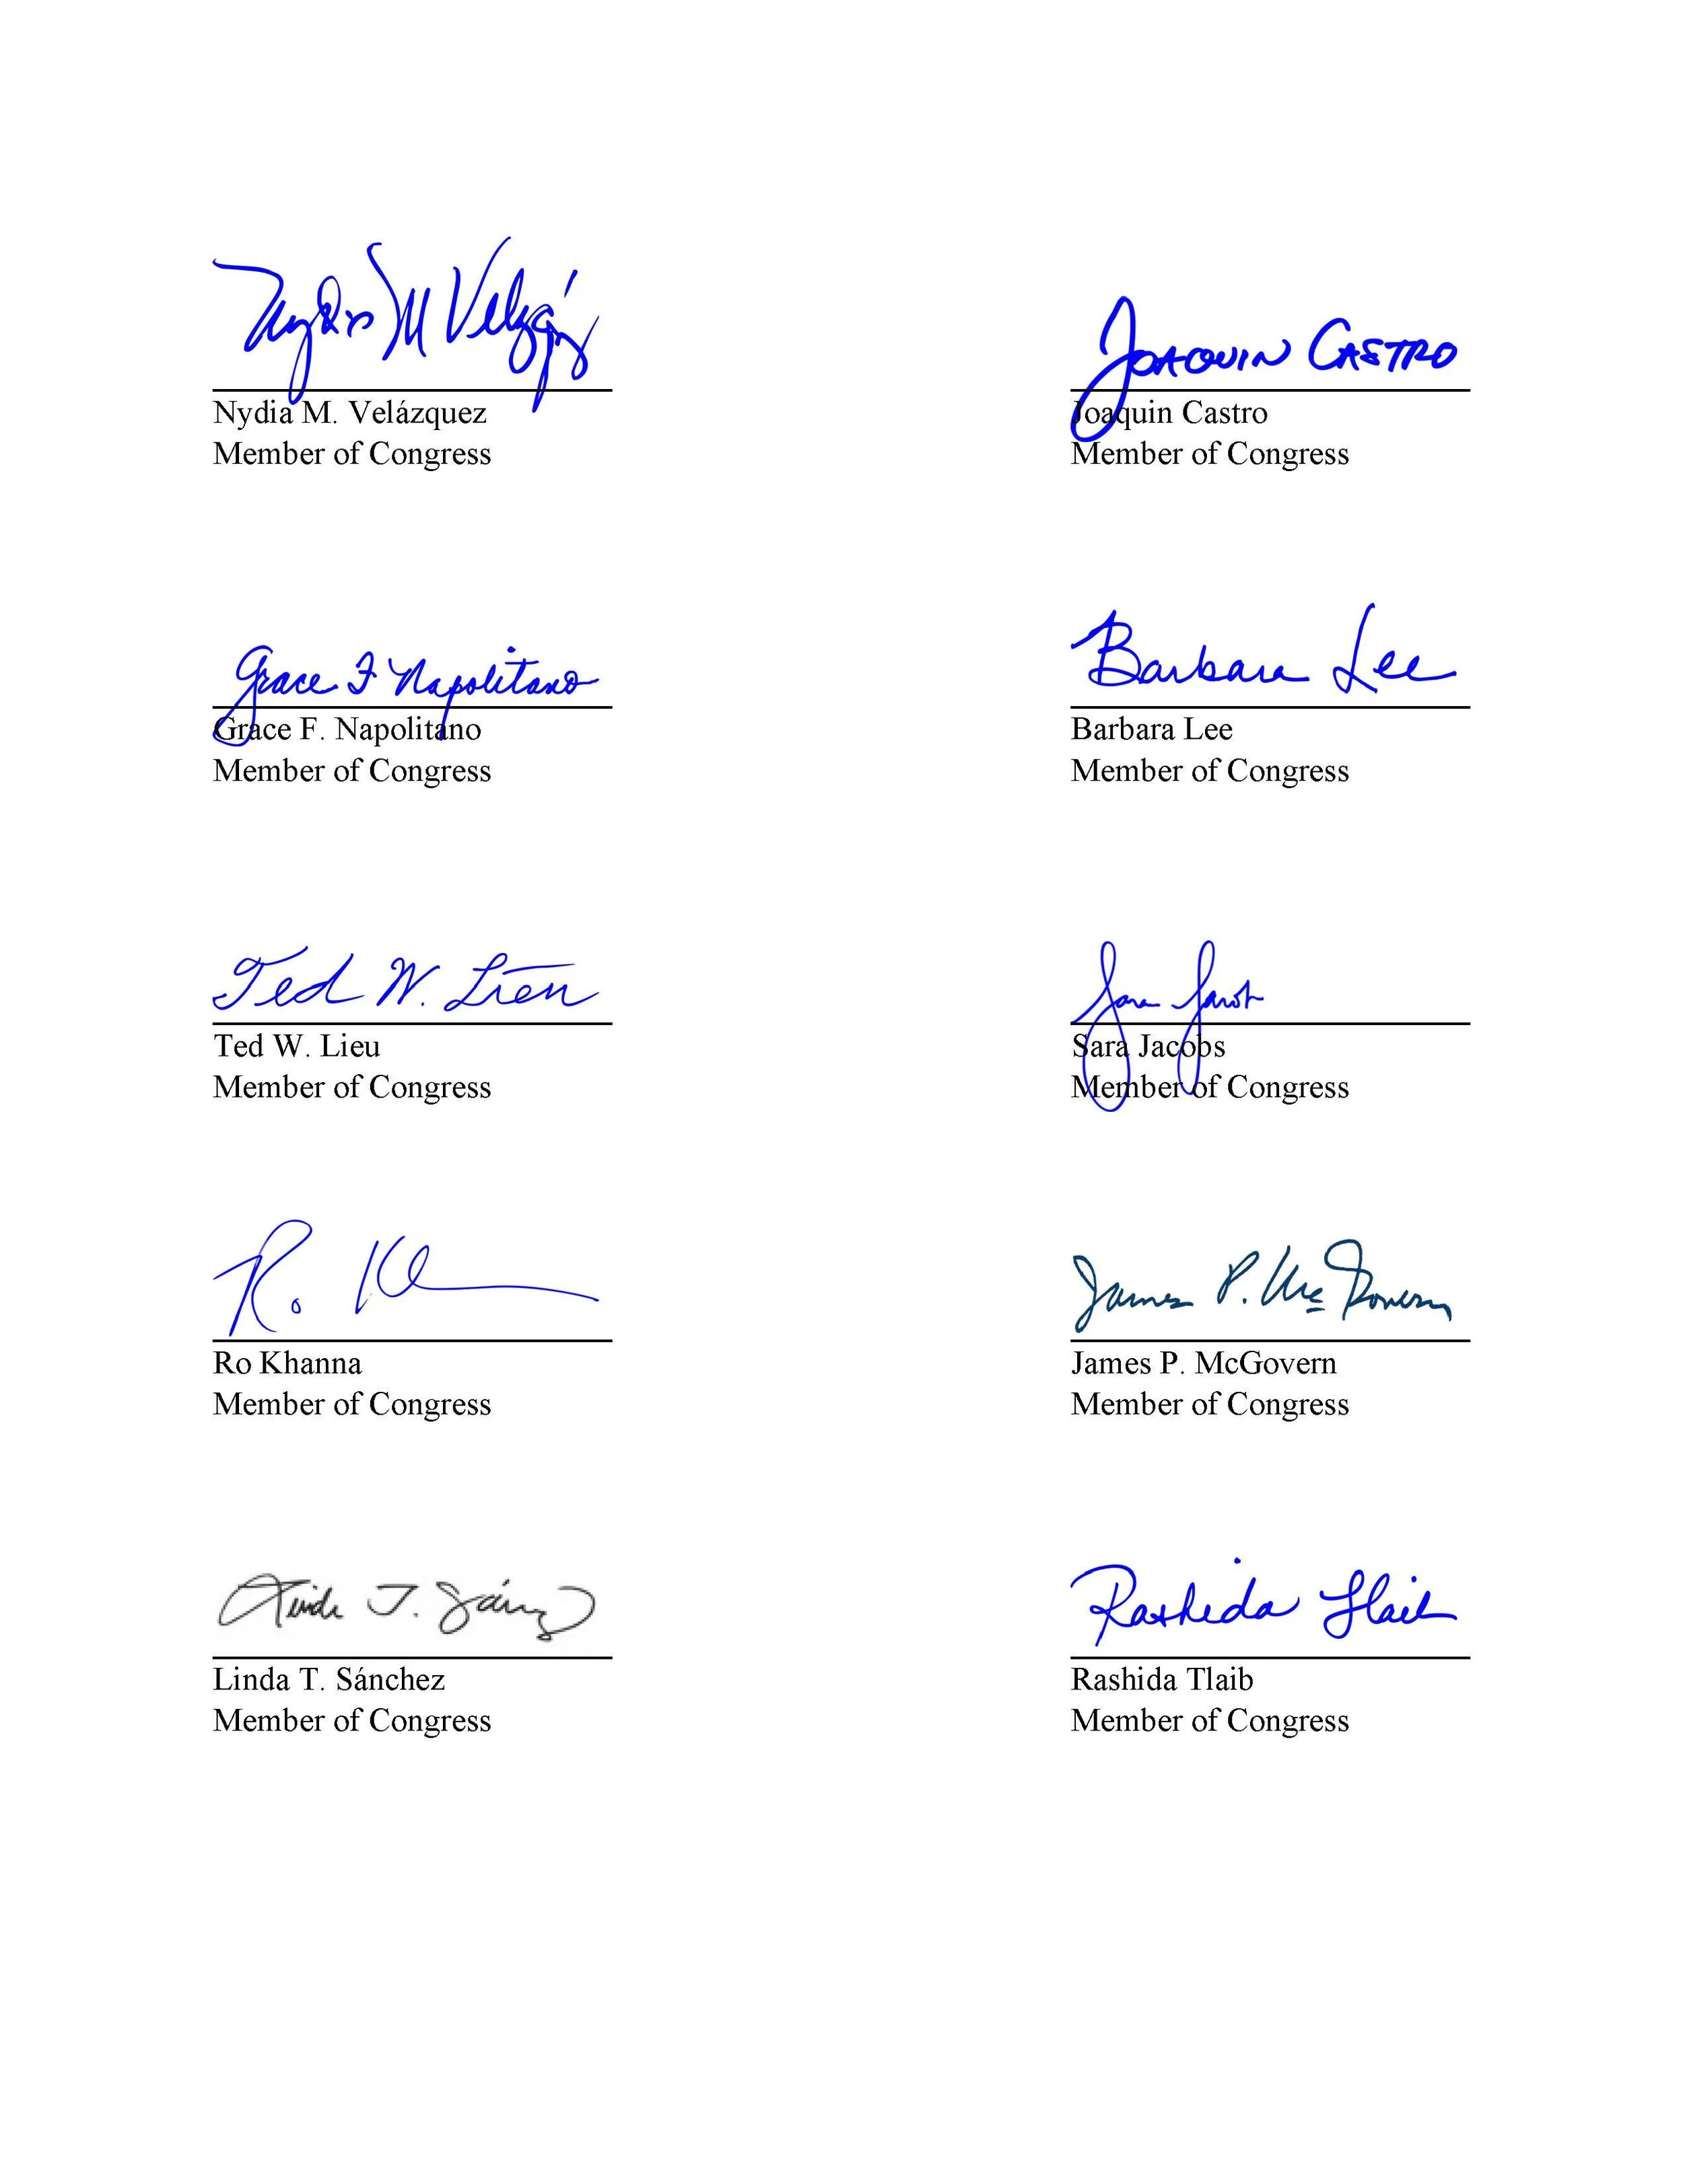 Nydia M Velázquez
Nydia M. Velázquez
Member of Congress
Joaquin Castro
Joaquin Castro
Member of Congress
Grace F Napolitano
Grace F. Napolitano
Member of Congress
Barbara Lee
Barbara Lee
Member of Congress
Ted W. Lieu
Ted W. Lieu
Member of Congress
Sara Jacobs
Sara Jacobs
Member of Congress
R. Kh
Ro Khanna
Member of Congress
James P. McGovern
James P. McGovern
Member of Congress
Linda T. Sánchez
Linda T. Sánchez
Member of Congress
Rashida Tlaib
Rashida Tlaib
Member of Congress